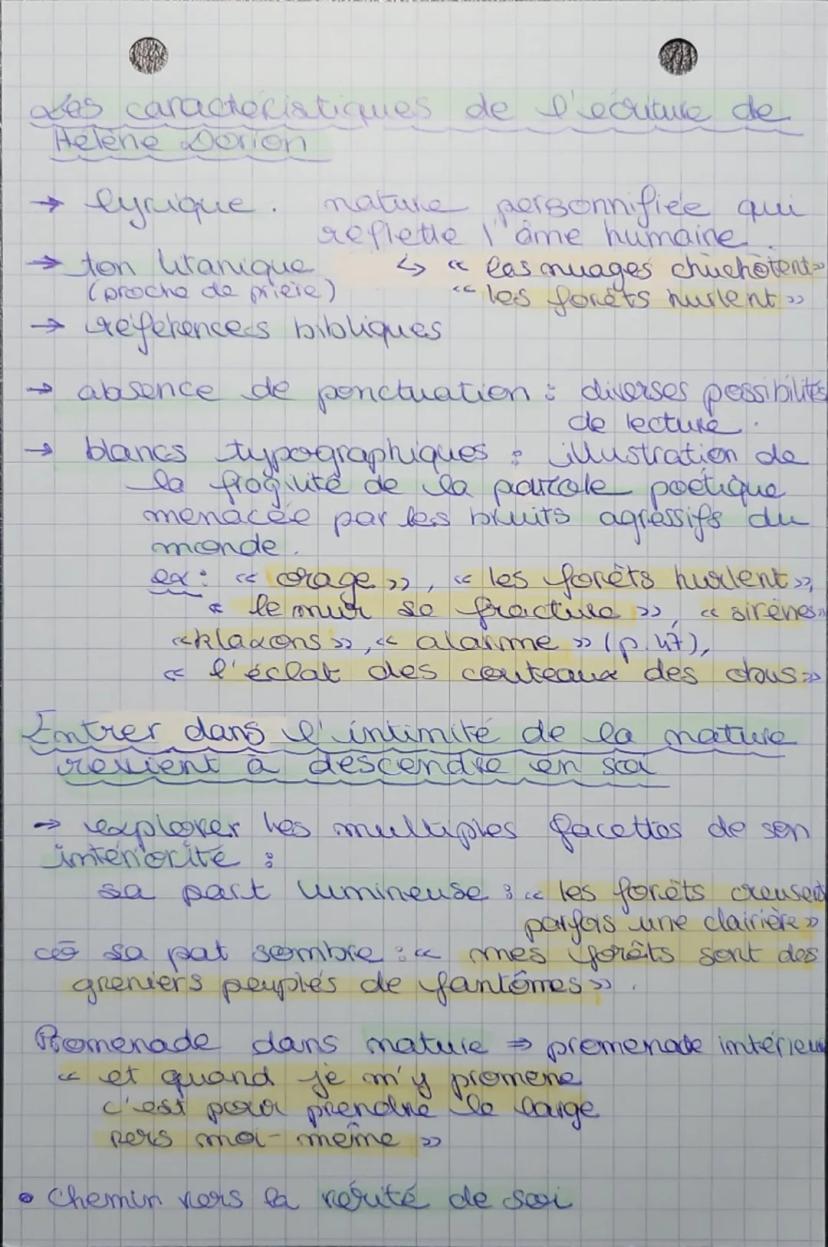 Les caractéristiques de l'écriture de
Hélène Dorion
→ lyrique. nature personnifiée qui
reflette l'âme humaine.
→ ton litanique ↳ « les nuages chuchotent»
(proche de prière) « les forêts hurlent »
→ références bibliques
→ absence de ponctuation : diverses possibilités
de lecture.
→ blancs typographiques : illustration de
la fragilité de la parole poétique
menacée par les bruits agressifs du
monde.
ex: « orage », « les forêts hurlent »,
« le mur se fracture », « sirènes»
«klaxons », « alarme » (p.47),
« l'éclat des couteaux des clous»
Entrer dans l'intimité de la nature
revient à descendre en soi
→ explorer les multiples facettes de son
intériorité :
sa part lumineuse : « les forêts creusent
parfois une clairière»
sa pat sombre : « mes forêts sont des
greniers peuplés de fantômes».
Promenade dans nature ⇒ promenade intérieu
« et quand je m'y promène
c'est pour prendre le large
vers moi-même »
• Chemin vers la vérité de soi